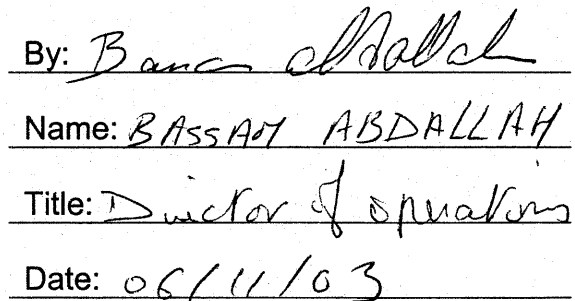 By: Bassam Abdallah
Name: BASSAM ABDALLAH
Title: Director of operations
Date: 06/11/03